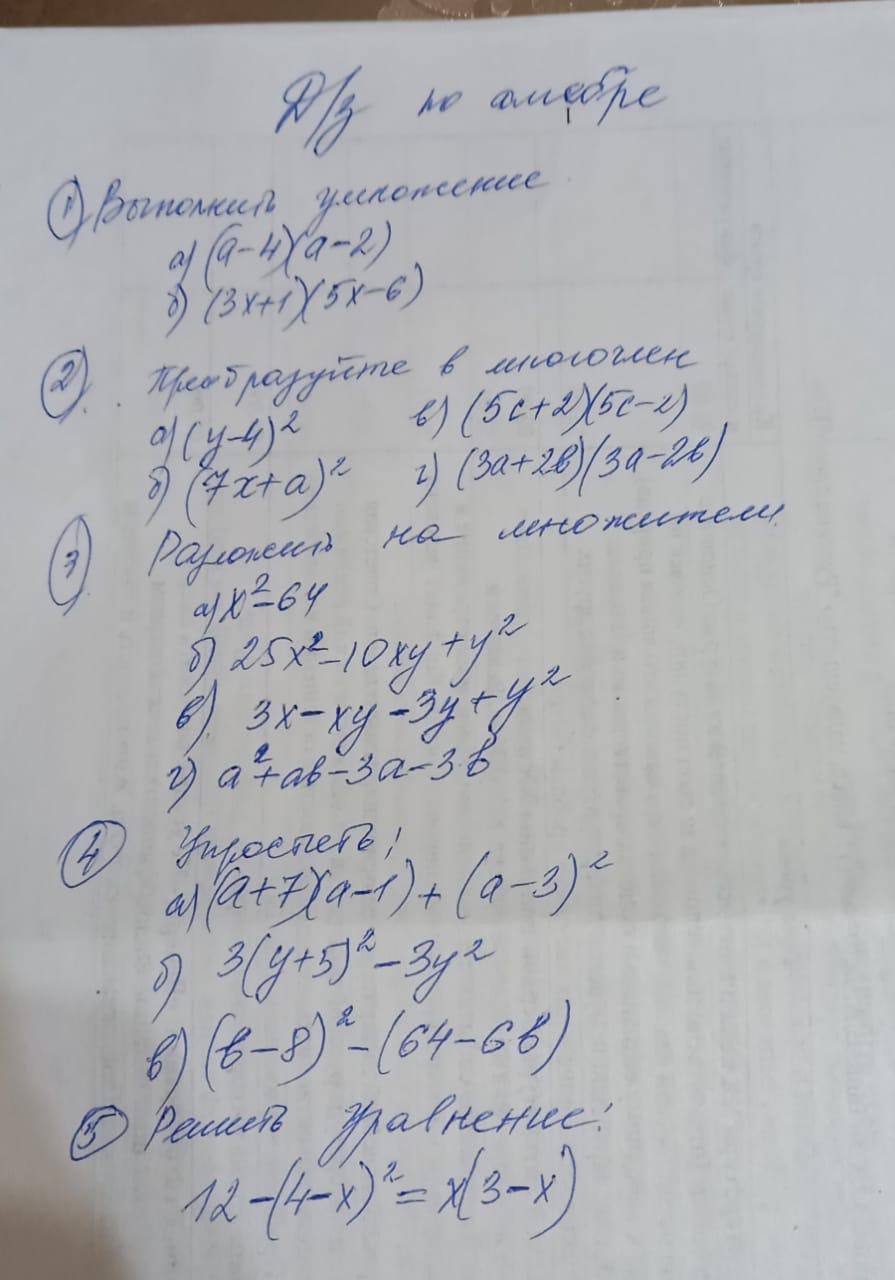 Д/з по алгебре
1 Выполнить умножение
а) (а-4)(а-2)
б) (3x+1)(5x-6)
2 Преобразуйте в многочлен
а) (y-4)² в) (5c+2)(5c-2)
б) (7x+a)² г) (3a+2в)(3a-2в)
3 Разложить на множители
а) x²-64
б) 25x²-10xy+y²
в) 3x-xy-3y+y²
г) a²+aв-3a-3в
4 Упростить:
а) (a+7)(a-1)+(a-3)²
б) 3(y+5)²-3y²
в) (в-8)²-(64-6в)
5 Решить Уравнение:
12-(4-x)²=x(3-x)